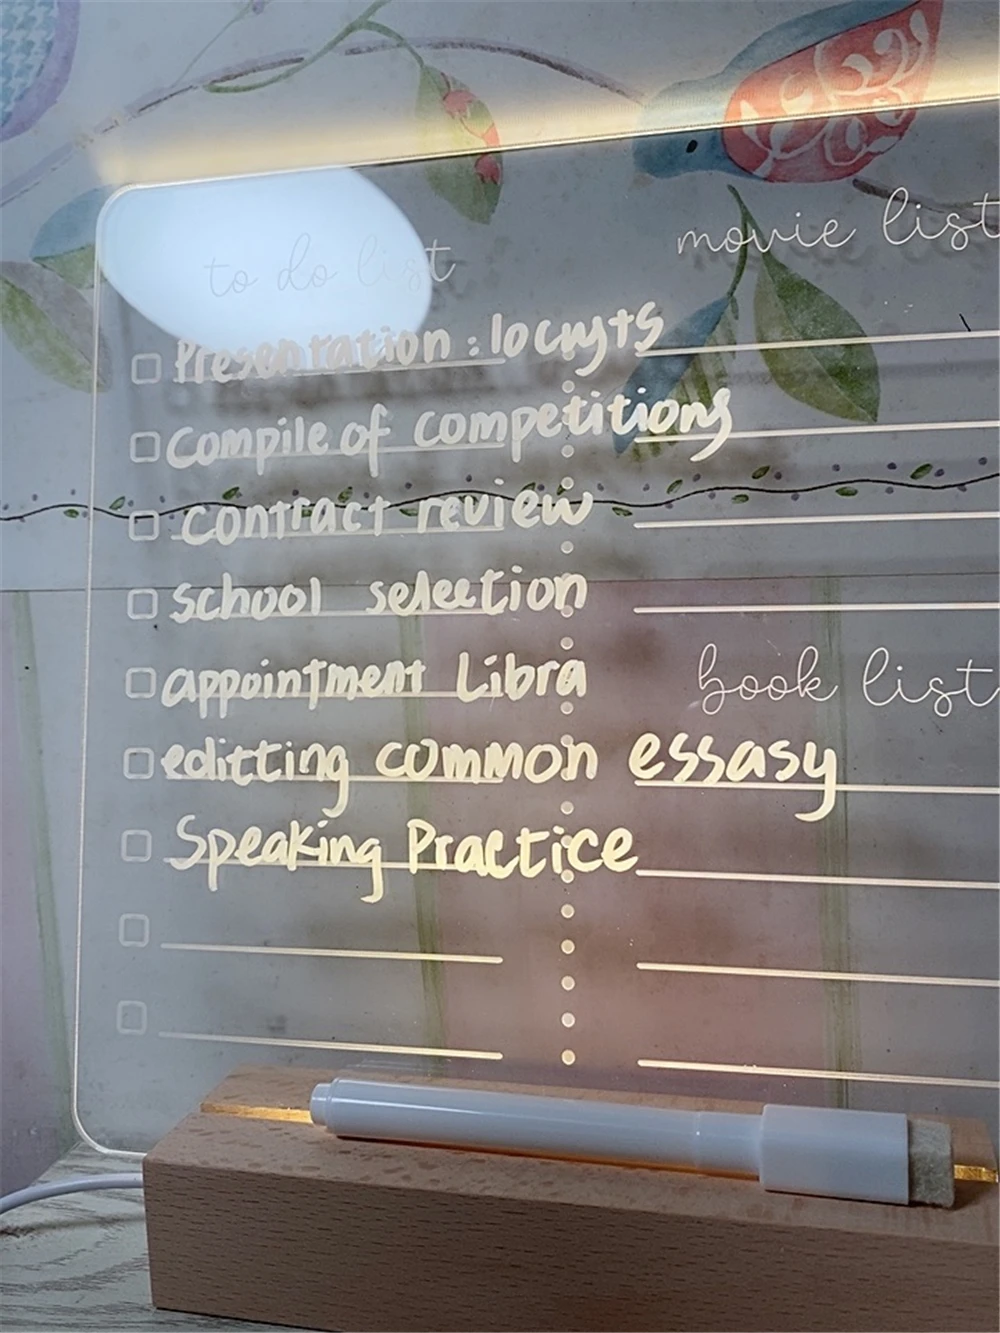 to do list
movie list
Presentation:
Compile of competitions
contract review
school selection
appointment Libra
book list
editting common essasy
Speaking Practice